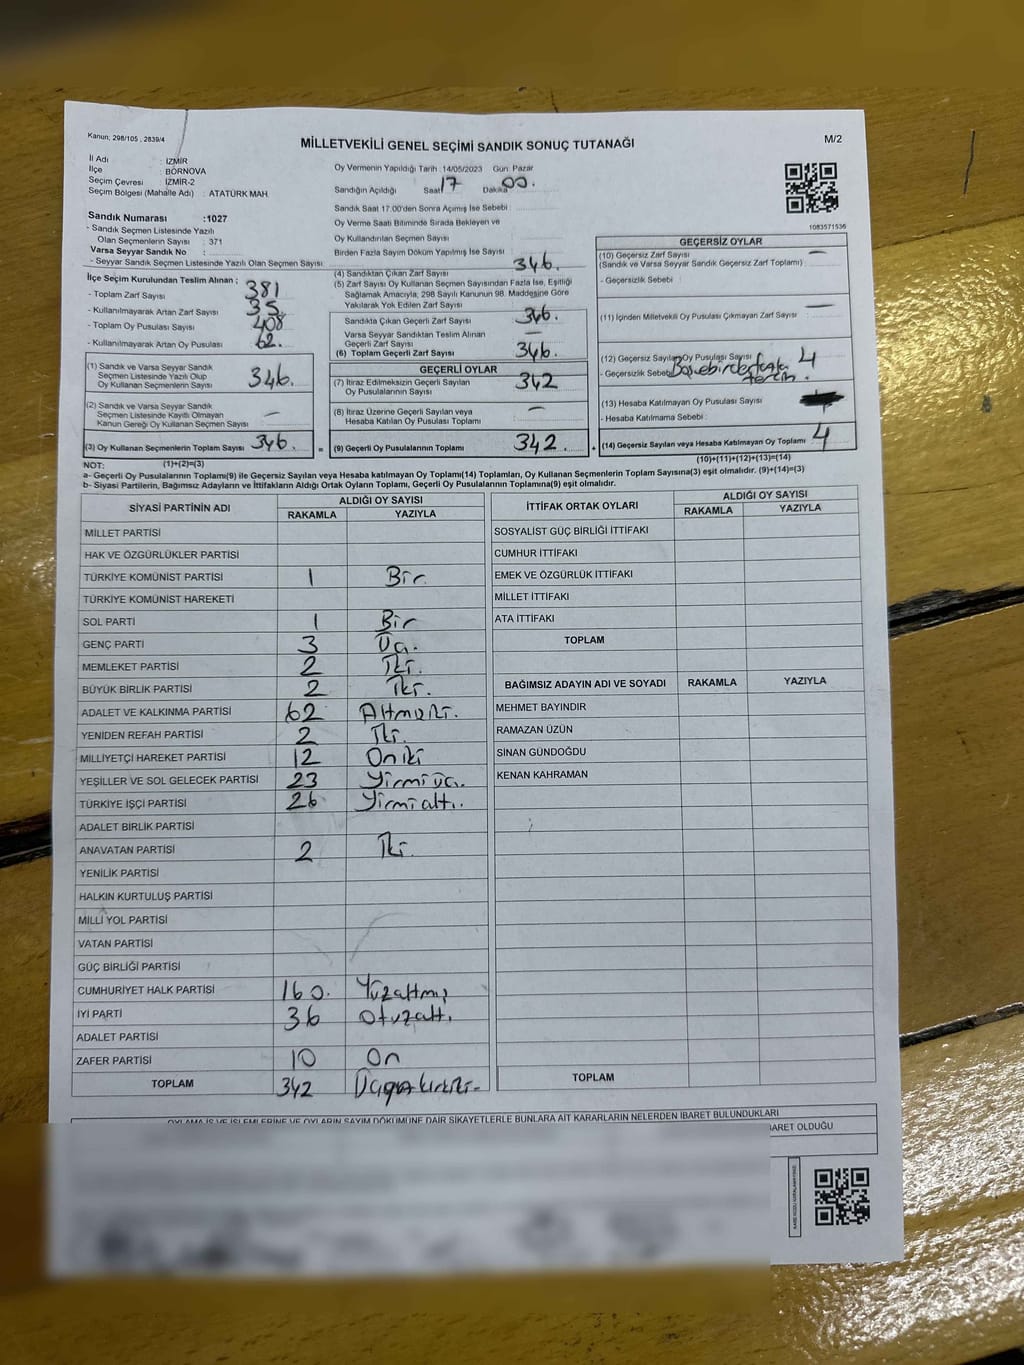 Kanun; 298/105 , 2839/4
MİLLETVEKİLİ GENEL SEÇİMİ SANDIK SONUÇ TUTANAĞI
M/2
İl Adı : İZMİR
İlçe : BORNOVA
Seçim Çevresi : İZMİR-2
Seçim Bölgesi (Mahalle Adı) : ATATÜRK MAH.
Sandık Numarası :1027
- Sandık Seçmen Listesinde Yazılı
Olan Seçmenlerin Sayısı : 371
Varsa Seyyar Sandık No :
- Seyyar Sandık Seçmen Listesinde Yazılı Olan Seçmen Sayısı:
İlçe Seçim Kurulundan Teslim Alınan ;
- Toplam Zarf Sayısı 381
- Kullanılmayarak Artan Zarf Sayısı 35
- Toplam Oy Pusulası Sayısı 408
- Kullanılmayarak Artan Oy Pusulası 62.
(1) Sandık ve Varsa Seyyar Sandık
Seçmen Listesinde Yazılı Olup
Oy Kullanan Seçmenlerin Sayısı 346.
(2) Sandık ve Varsa Seyyar Sandık
Seçmen Listesinde Kayıtlı Olmayan
Kanun Gereği Oy Kullanan Seçmen Sayısı —
(3) Oy Kullanan Seçmenlerin Toplam Sayısı 346.
(1)+(2)=(3)
Oy Vermenin Yapıldığı Tarih : 14/05/2023 Gün: Pazar
Sandığın Açıldığı Saat 17 Dakika 00.
Sandık Saat 17.00'den Sonra Açılmış İse Sebebi :
Oy Verme Saati Bitiminde Sırada Bekleyen ve
Oy Kullandırılan Seçmen Sayısı :
Birden Fazla Sayım Döküm Yapılmış İse Sayısı :
(4) Sandıktan Çıkan Zarf Sayısı 346.
(5) Zarf Sayısı Oy Kullanan Seçmen Sayısından Fazla İse, Eşitliği
Sağlamak Amacıyla; 298 Sayılı Kanunun 98. Maddesine Göre
Yakılarak Yok Edilen Zarf Sayısı :
Sandıkta Çıkan Geçerli Zarf Sayısı 346.
Varsa Seyyar Sandıktan Teslim Alınan
Geçerli Zarf Sayısı —
(6) Toplam Geçerli Zarf Sayısı 346.
GEÇERLİ OYLAR
(7) İtiraz Edilmeksizin Geçerli Sayılan
Oy Pusulalarının Sayısı 342
(8) İtiraz Üzerine Geçerli Sayılan veya
Hesaba Katılan Oy Pusulası Toplamı —
= (9) Geçerli Oy Pusulalarının Toplamı 342.
1083571536
GEÇERSİZ OYLAR
(10) Geçersiz Zarf Sayısı —
(Sandık ve Varsa Seyyar Sandık Geçersiz Zarf Toplamı)
- Geçersizlik Sebebi :
(11) İçinden Milletvekili Oy Pusulası Çıkmayan Zarf Sayısı —
(12) Geçersiz Sayılan Oy Pusulası Sayısı 4
- Geçersizlik Sebebi
(13) Hesaba Katılmayan Oy Pusulası Sayısı
- Hesaba Katılmama Sebebi :
+ (14) Geçersiz Sayılan veya Hesaba Katılmayan Oy Toplamı 4
(10)+(11)+(12)+(13)=(14)
NOT:
a- Geçerli Oy Pusulalarının Toplamı(9) ile Geçersiz Sayılan veya Hesaba katılmayan Oy Toplamı(14) Toplamları, Oy Kullanan Seçmenlerin Toplam Sayısına(3) eşit olmalıdır. (9)+(14)=(3)
b- Siyasi Partilerin, Bağımsız Adayların ve İttifakların Aldığı Ortak Oyların Toplamı, Geçerli Oy Pusulalarının Toplamına(9) eşit olmalıdır.
SİYASİ PARTİNİN ADI ALDIĞI OY SAYISI
RAKAMLA YAZIYLA
MİLLET PARTİSİ
HAK VE ÖZGÜRLÜKLER PARTİSİ
TÜRKİYE KOMÜNİST PARTİSİ 1 Bir.
TÜRKİYE KOMÜNİST HAREKETİ
SOL PARTİ 1 Bir
GENÇ PARTİ 3 Üç.
MEMLEKET PARTİSİ 2 İki.
BÜYÜK BİRLİK PARTİSİ 2 İki.
ADALET VE KALKINMA PARTİSİ 62 Altmışiki.
YENİDEN REFAH PARTİSİ 2 İki.
MİLLİYETÇİ HAREKET PARTİSİ 12 Oniki
YEŞİLLER VE SOL GELECEK PARTİSİ 23 Yirmi üç.
TÜRKİYE İŞÇİ PARTİSİ 26 Yirmi altı.
ADALET BİRLİK PARTİSİ
ANAVATAN PARTİSİ 2 İki.
YENİLİK PARTİSİ
HALKIN KURTULUŞ PARTİSİ
MİLLİ YOL PARTİSİ
VATAN PARTİSİ
GÜÇ BİRLİĞİ PARTİSİ
CUMHURİYET HALK PARTİSİ 160. Yüzaltmış
İYİ PARTİ 36 Otuzaltı
ADALET PARTİSİ
ZAFER PARTİSİ 10 On
TOPLAM 342 Üçyüzkırkiki.
İTTİFAK ORTAK OYLARI ALDIĞI OY SAYISI
RAKAMLA YAZIYLA
SOSYALİST GÜÇ BİRLİĞİ İTTİFAKI
CUMHUR İTTİFAKI
EMEK VE ÖZGÜRLÜK İTTİFAKI
MİLLET İTTİFAKI
ATA İTTİFAKI
TOPLAM
BAĞIMSIZ ADAYIN ADI VE SOYADI RAKAMLA YAZIYLA
MEHMET BAYINDIR
RAMAZAN ÜZÜN
SİNAN GÜNDOĞDU
KENAN KAHRAMAN
TOPLAM
OYLAMA İŞ VE İŞLEMLERİNE VE OYLARIN SAYIM DÖKÜMÜNE DAİR ŞİKAYETLERLE BUNLARA AİT KARARLARIN NELERDEN İBARET BULUNDUKLARI
İBARET OLDUĞU